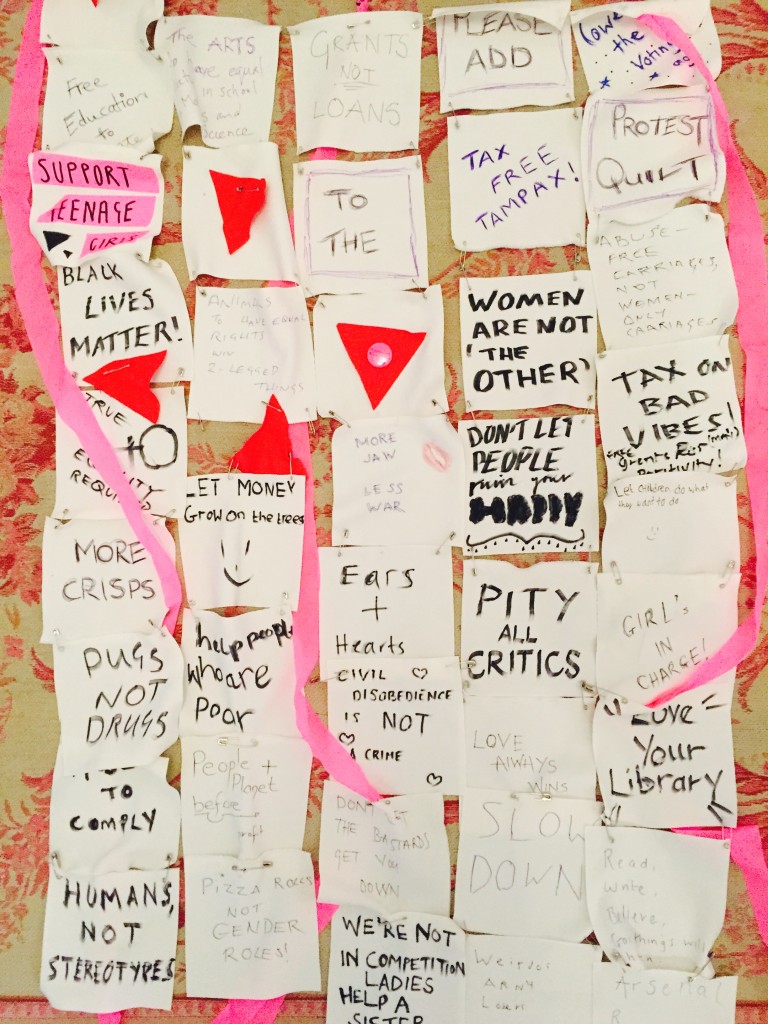 The ARTS
to have equal
in school
and
Science
GRANTS
NOT
LOANS
PLEASE
ADD
Lower
the
Voting
Free
Education
to
TAX
FREE
TAMPAX!
PROTEST
QUILT
SUPPORT
TEENAGE
GIRLS
TO
THE
ABUSE-
FREE
CARRIAGES,
NOT
WOMEN-
ONLY
CARRIAGES
BLACK
LIVES
MATTER!
Animals
TO HAVE EQUAL
RIGHTS
2-LEGGED
THINGS
WOMEN
ARE NOT
'THE
OTHER'
TAX ON
BAD
VIBES!
FREE
grants for
Positivity!
TRUE
EQUALITY
REQUIRED
LET MONEY
Grow on the trees
MORE
JAW
LESS
WAR
DON'T LET
PEOPLE
ruin your
HAPPY
Let children do what
they want to do
MORE
CRISPS
Ears
+
Hearts
PITY
ALL
CRITICS
GIRL'S
IN
CHARGE!
PUGS
NOT
DRUGS
help people
who are
poor
CIVIL
DISOBEDIENCE
IS NOT
A CRIME
LOVE
ALWAYS
WINS
Love
Your
Library
TO
COMPLY
People +
Planet
before
DON'T LET
THE BASTARDS
GET YOU
DOWN
SLOW
DOWN
Read.
Write.
Believe.
HUMANS,
NOT
STEREOTYPES
PIZZA ROLLS
NOT
GENDER
ROLES!
WE'RE NOT
IN COMPETITION
LADIES
HELP A
SISTER
Arsenal